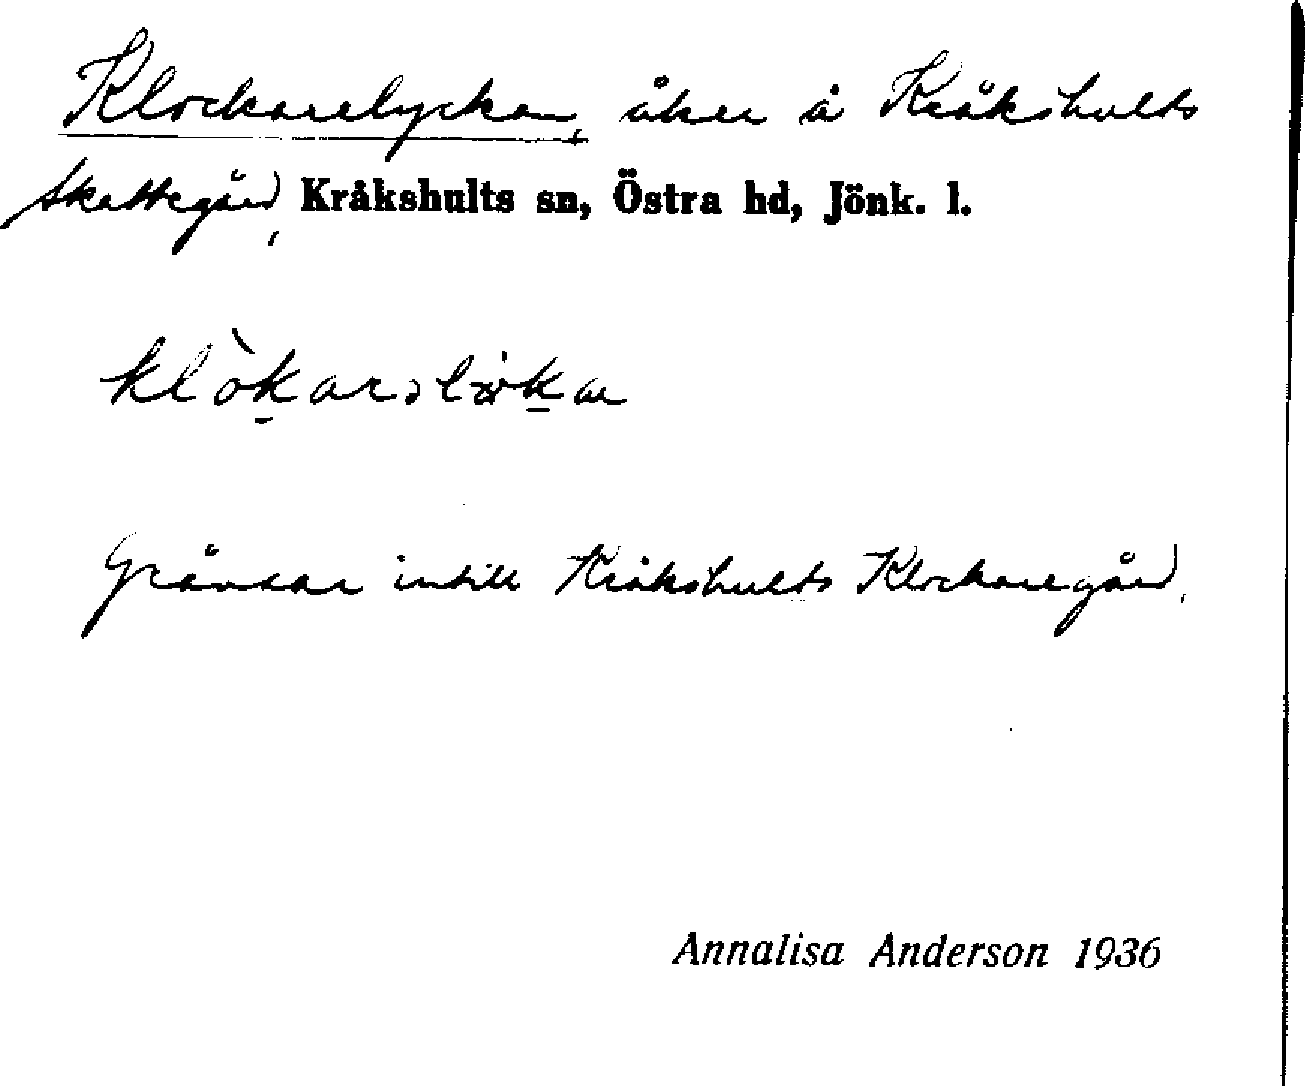 Klockarelyckan, åker å Kråkshults
Skattegård, Kråkshults sn, Östra hd, Jönk. l.
Gränsar intill Kråkshults Klockaregård.
Annalisa Anderson 1936